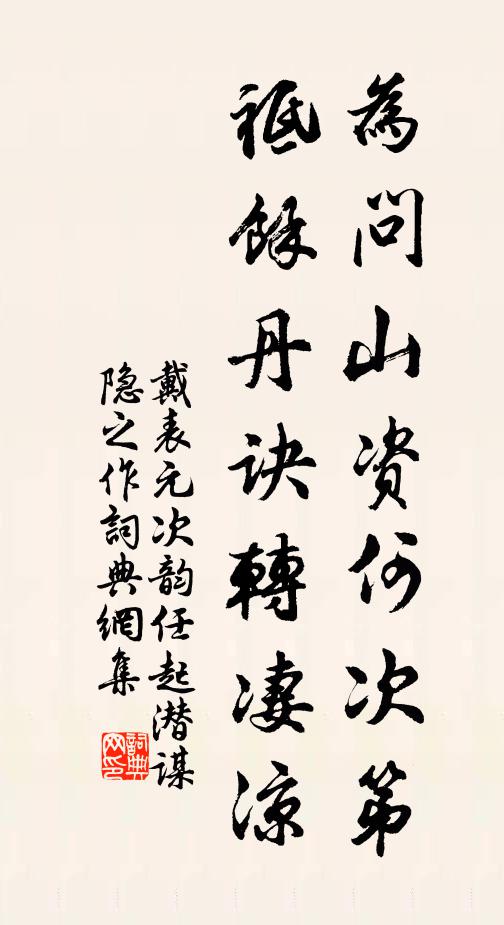 為問山資何次第
祗餘丹訣轉凄涼
戴表元次韵任起潜謀
隐之作詞典網集
詞典
网印